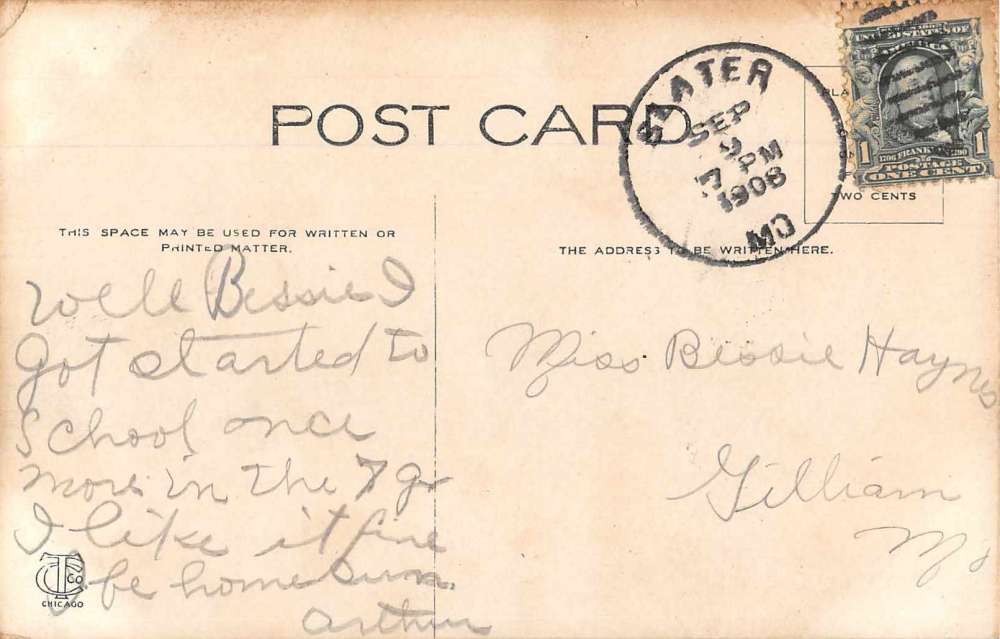 POST CARD
SLATER
SEP
9
7 PM
1908
MO
UNITED STATES OF
AMERICA
1 1
1706 FRANKLIN 1790
POSTAGE
ONE CENT
TWO CENTS
THIS SPACE MAY BE USED FOR WRITTEN OR
PRINTED MATTER.
THE ADDRESS TO BE WRITTEN HERE.
Well Bessie I
got started to
School once
more in the 7 gr
I like it fine
be home Sun.
Arthur
Miss Bessie Haynes
Gilliam
Mo
CTCo
CHICAGO